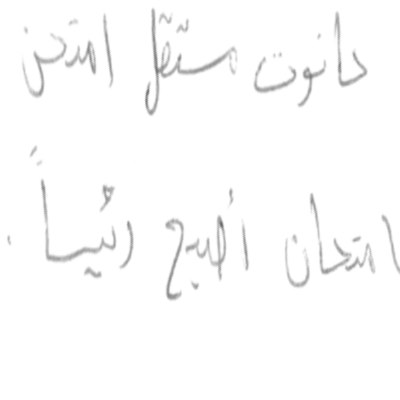 حانوت مستقل امتحن
امتحان أصبح رئيساً .